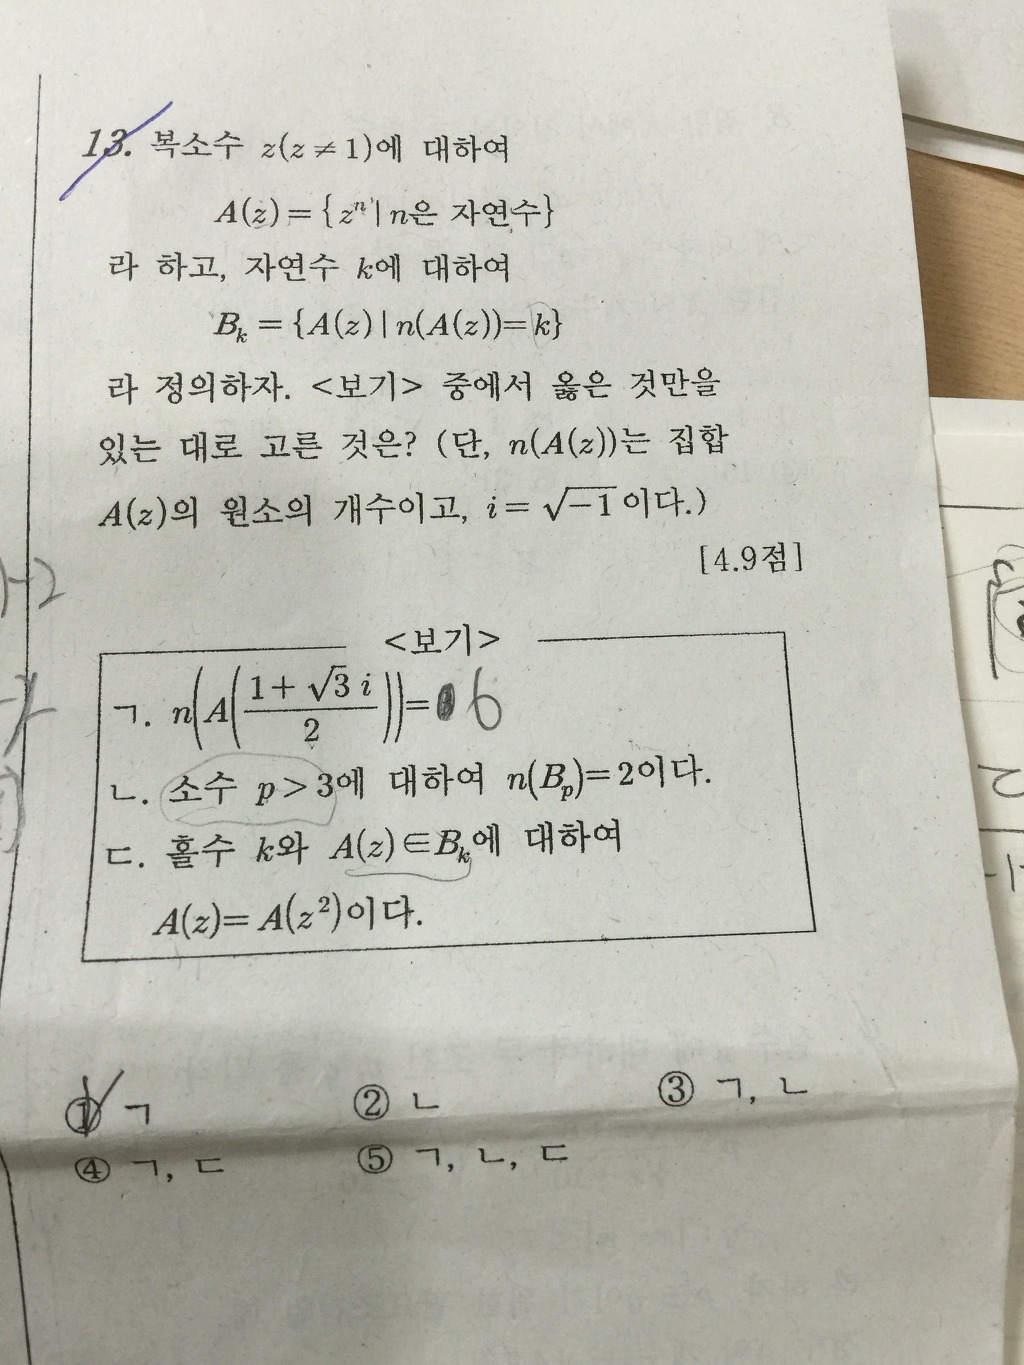 13. 복소수 z(z≠1)에 대하여
A(z)={zⁿ|n은 자연수}
라 하고, 자연수 k에 대하여
Bₖ={A(z)|n(A(z))=k}
라 정의하자. <보기> 중에서 옳은 것만을
있는 대로 고른 것은? (단, n(A(z))는 집합
A(z)의 원소의 개수이고, i=√-1이다.)
[4.9점]
<보기>
ㄱ. n(A((1+√3 i)/2))=6
ㄴ. 소수 p>3에 대하여 n(Bₚ)=2이다.
ㄷ. 홀수 k와 A(z)∈Bₖ에 대하여
A(z)=A(z²)이다.
① ㄱ ② ㄴ ③ ㄱ, ㄴ
④ ㄱ, ㄷ ⑤ ㄱ, ㄴ, ㄷ